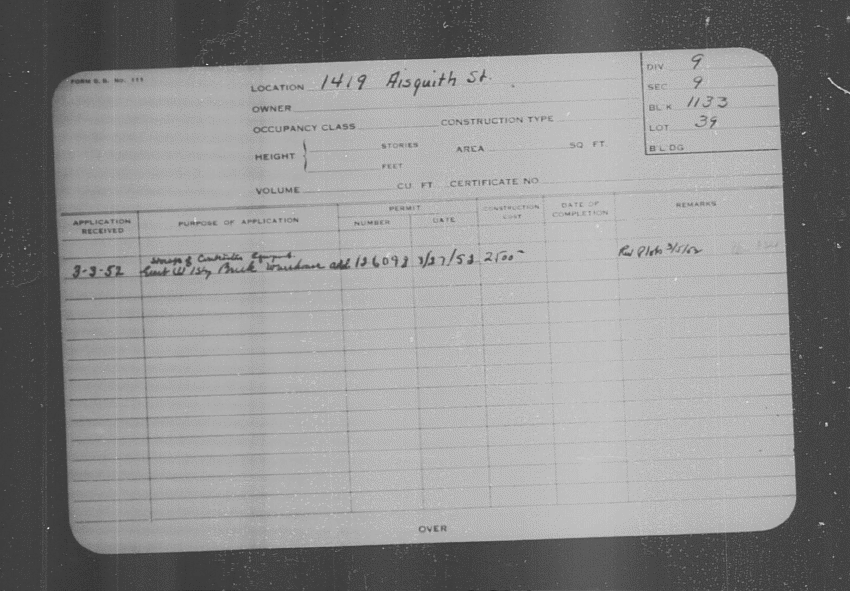 FORM B. B. No. 111
LOCATION 1419 Aisquith St.
DIV 9
SEC 9
BLK 1133
LOT 39
BLDG
OWNER
OCCUPANCY CLASS CONSTRUCTION TYPE
HEIGHT STORIES AREA SQ. FT.
FEET
VOLUME CU. FT. CERTIFICATE NO
APPLICATION RECEIVED PURPOSE OF APPLICATION PERMIT NUMBER DATE CONSTRUCTION COST DATE OF COMPLETION REMARKS
Storage of Contractors Equipment
3-3-52 1 Sty Brick Warehouse 126092 3/27/52 2500 Plots 3/5/52
OVER